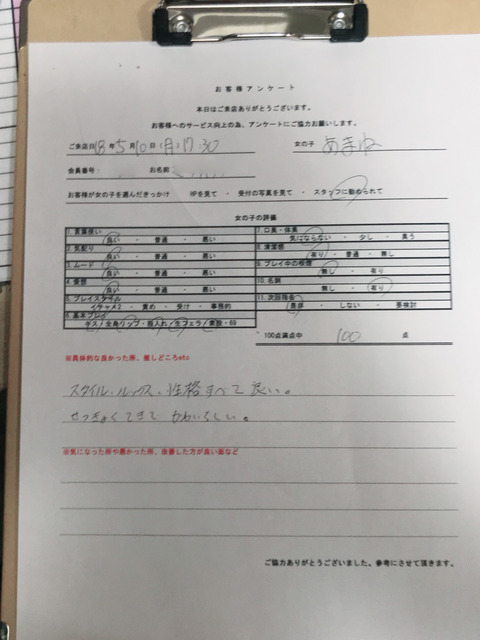 お客様アンケート
本日はご来店ありがとうございます。
お客様へのサービス向上の為、アンケートにご協力お願いします。
ご来店日 18年 5月 10日 (月) 17:30 女の子 あまね
会員番号: お名前:
お客様が女の子を選んだきっかけ HPを見て ・ 受付の写真を見て ・ スタッフに勧められて
女の子の評価
1.言葉使い 7.口臭・体臭
良い ・ 普通 ・ 悪い 気にならない ・ 少し ・ 臭う
2.気配り 8.清潔感
良い ・ 普通 ・ 悪い 有り ・ 普通 ・ 無し
3.ムード 9.プレイ中の喫煙
良い ・ 普通 ・ 悪い 無し ・ 有り
4.愛想 10.名刺
良い ・ 普通 ・ 悪い 無し ・ 有り
5.プレイスタイル 11.次回指名
イチャイチャ ・ 責め ・ 受け ・ 事務的 是非 ・ しない ・ 要検討
6.基本プレイ
キス/全身リップ・指入れ/生フェラ/素股・69
100点満点中 100 点
※具体的な良かった所、推しどころetc
スタイル・ルックス・性格すべて良い。
せっきょくてきで かわいらしい。
※気になった所や悪かった所、改善した方が良い面など
ご協力ありがとうございました。参考にさせて頂きます。